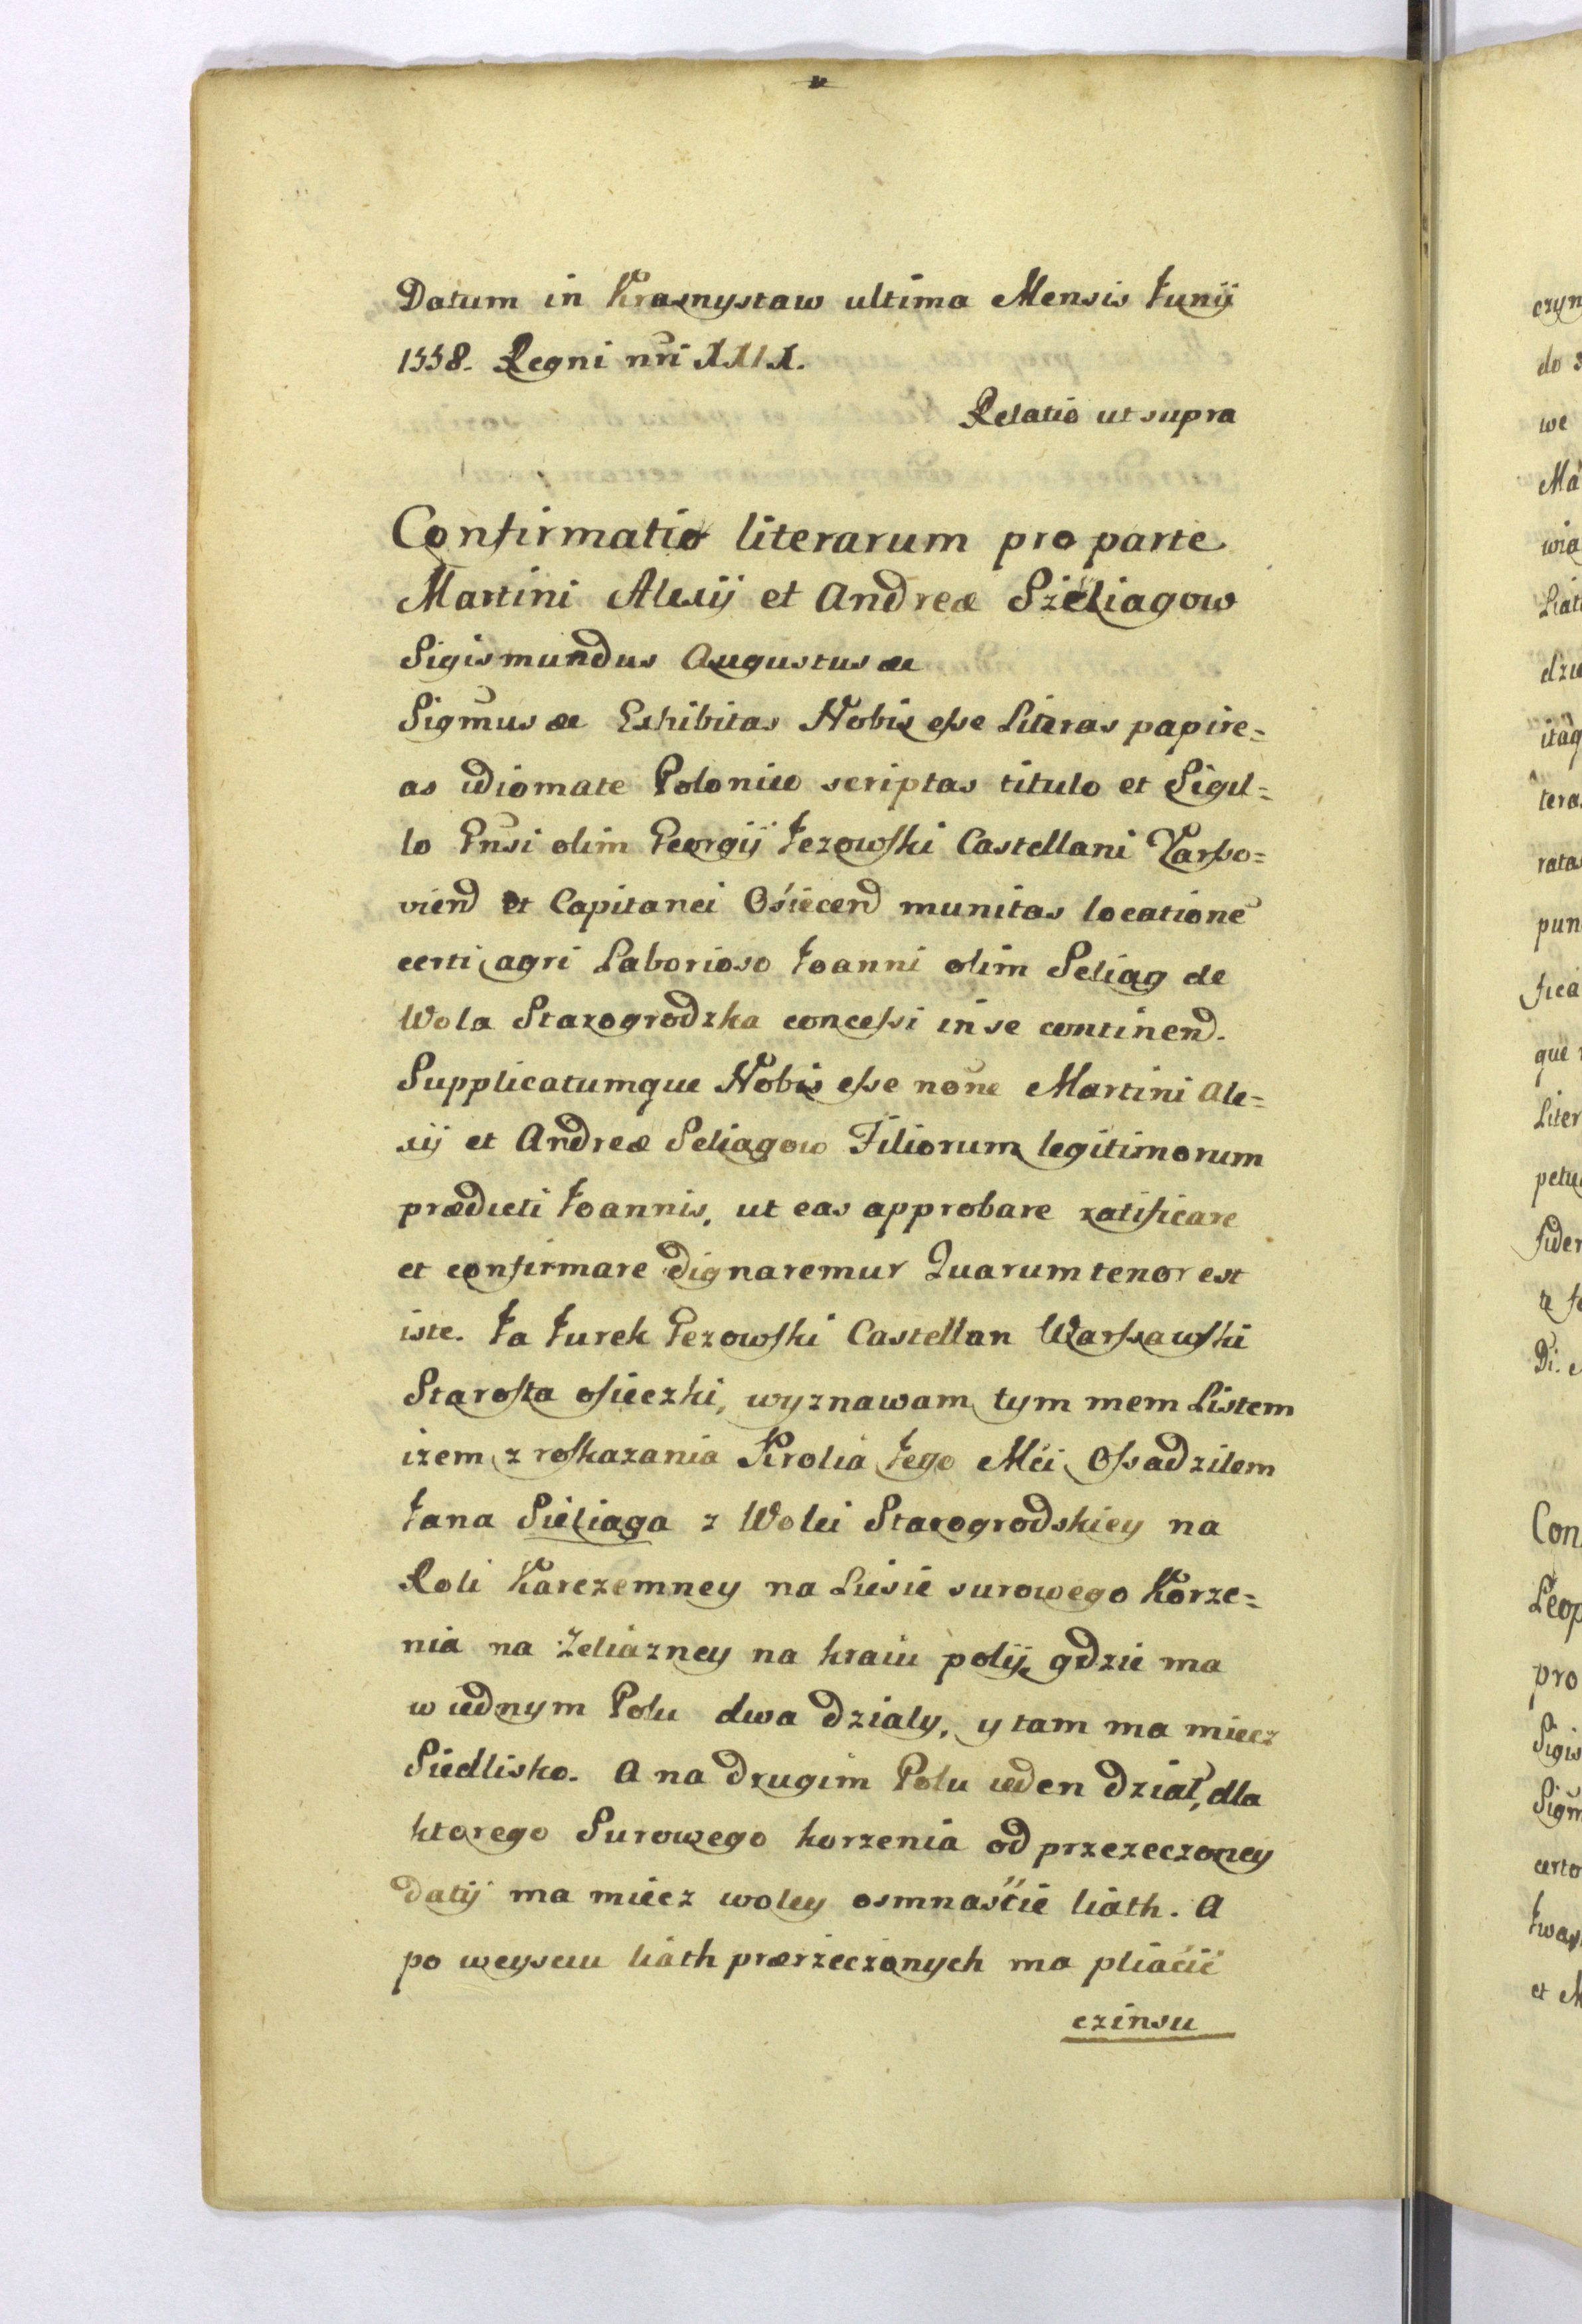 Datum in Krasnystaw ultima Mensis Junij
1558. Regni nri XXIX.
Relatio ut supra
Confirmatio literarum pro parte
Martini Alexij et Andreæ Szeliagow
Sigismundus Augustus &c
Sigmus &c Exhibitas Nobis esse Literas papire=
as idiomate Polonico scriptas titulo et Sigil=
lo Gnsi olim Georgij Jezowski Castellani Varso=
vien et Capitanei Osiecen munitas locatione
certi agri Laborioso Joanni olim Seliag de
Wola Starogrodzka concessi in se continend.
Supplicatumque Nobis esse none Martini Ale=
xij et Andreæ Seliagow Filiorum legitimorum
prædicti Joannis, ut eas approbare ratificare
et confirmare dignaremur Quarum tenor est
iste. Ja Jurek Jezowski Castellan Warsawski
Starosta osieczki, wyznawam tym mem Listem
izem z roskazania Krolia Jego Mci Ossadzilem
Jana Sieliaga z Wolei Starogrodskiey na
Roli Karczemney na Liesie surowego Korze=
nia na Zeliazney na kraiu polij gdzie ma
w iednym Polu dwa dzialy, y tam ma miecz
Siedlisko. A na drugim Polu ieden dział, dla
ktorego Surowego korzenia od przezeczoney
datij ma miecz woley osmnaście liath. A
po weysciu liath prærzeczonych ma pliacić
czinsu